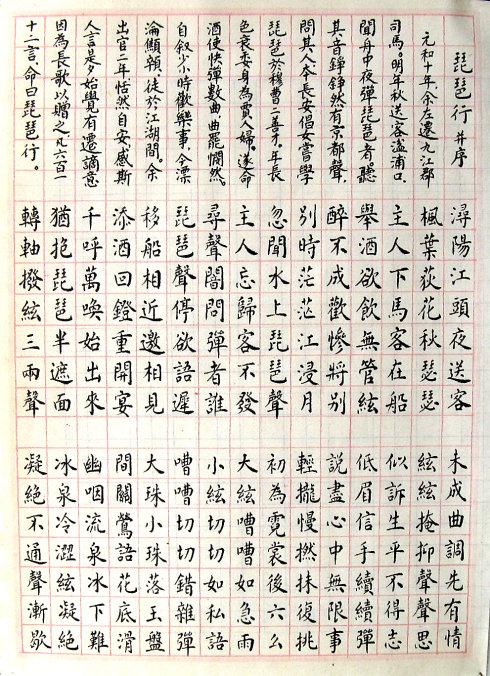 琵琶行 并序
元和十年、余左遷九江郡
司馬。明年秋送客湓浦口、
聞舟中夜彈琵琶者、聽
其音、錚錚然有京都聲、
問其人、本長安倡女、嘗學
琵琶於穆曹二善才。年長
色衰、委身為賈人婦。遂命
酒使快彈數曲、曲罷憫然。
自叙少小時歡樂事、今漂
淪顦顇、徙於江湖間。余
出官二年、恬然自安、感斯
人言、是夕始覺有遷謫意
因為長歌以贈之、凡六百一
十二言、命曰琵琶行。
潯陽江頭夜送客
楓葉荻花秋瑟瑟
主人下馬客在船
舉酒欲飲無管絃
醉不成歡慘將別
別時茫茫江浸月
忽聞水上琵琶聲
主人忘歸客不發
尋聲闇問彈者誰
琵琶聲停欲語遲
移船相近邀相見
添酒回鐙重開宴
千呼萬喚始出來
猶抱琵琶半遮面
轉軸撥絃三兩聲
未成曲調先有情
絃絃掩抑聲聲思
似訴生平不得志
低眉信手續續彈
說盡心中無限事
輕攏慢撚抹復挑
初為霓裳後六幺
大絃嘈嘈如急雨
小絃切切如私語
嘈嘈切切錯雜彈
大珠小珠落玉盤
間關鶯語花底滑
幽咽流泉冰下難
冰泉冷澀絃凝絕
凝絕不通聲漸歇